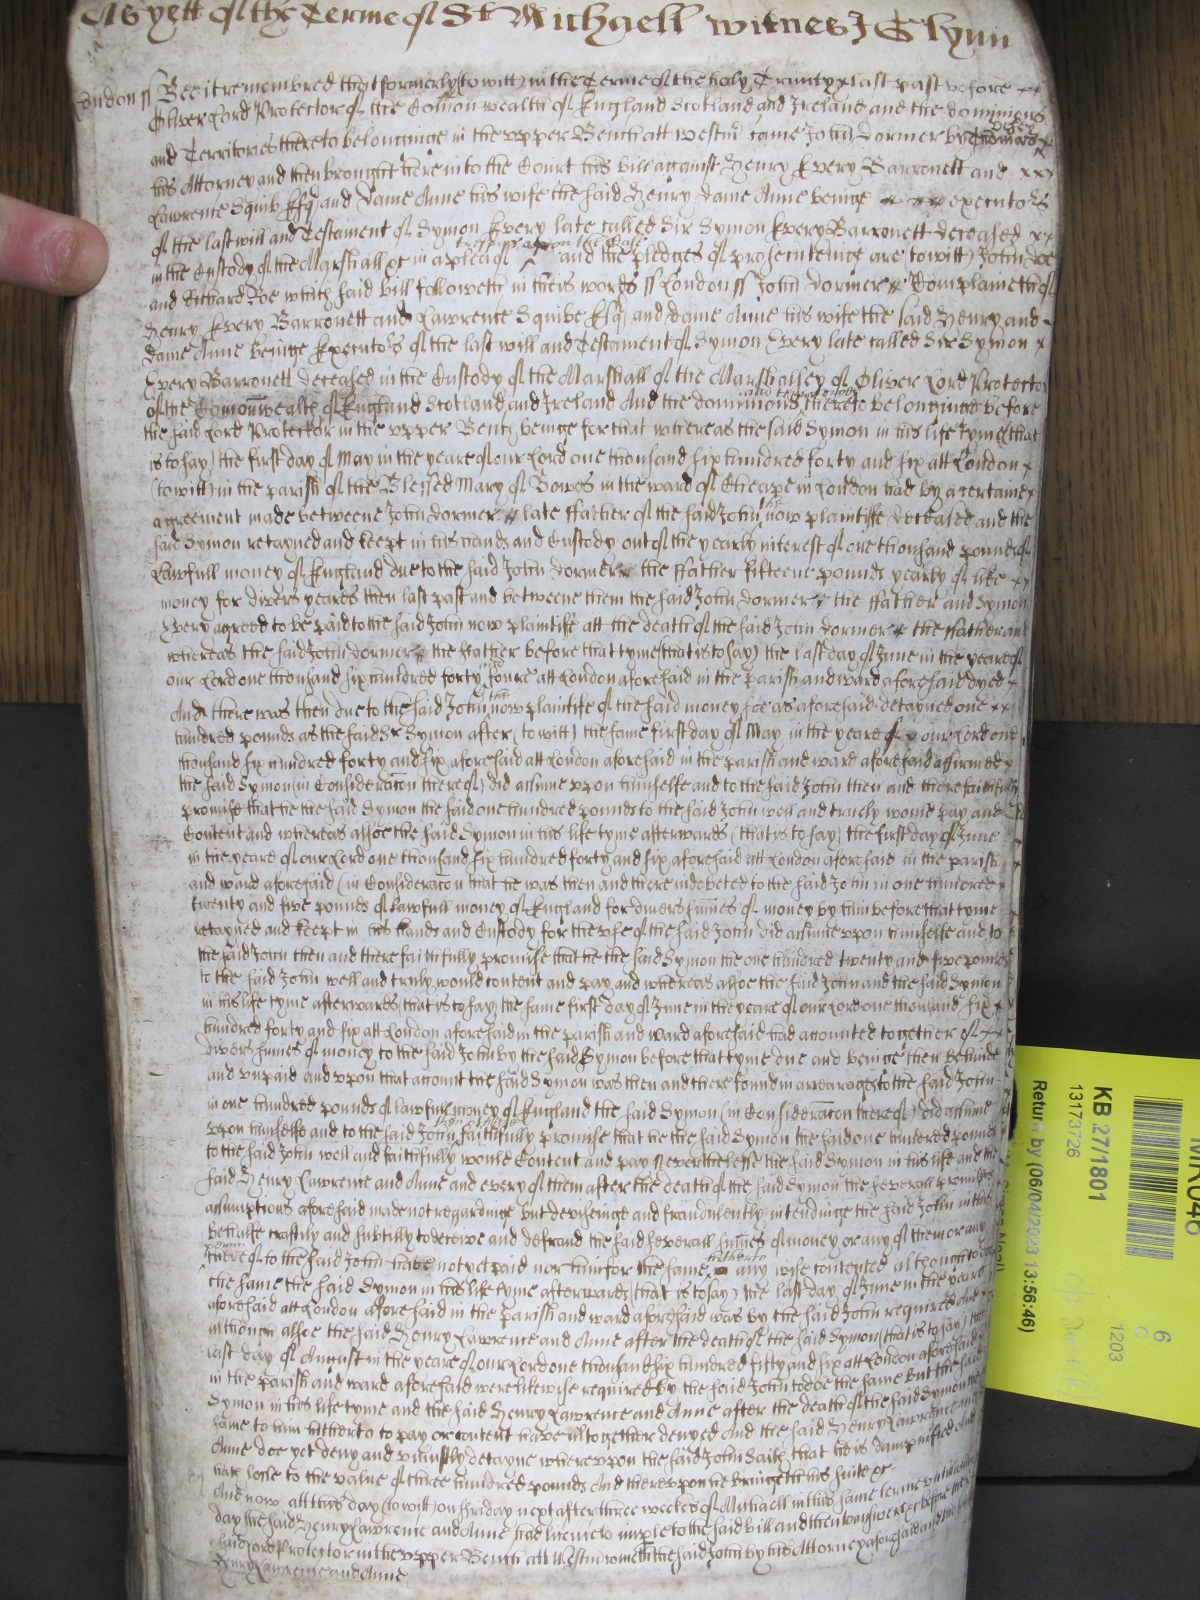 As yett of the Terme of St Michaell witnes J Glynn
London ss Bee it remembred that formerly (to witt) in the Terme of the holy Trinity last past before
Oliver Lord Protector of the Comon wealth of England Scotland and Ireland and the dominions
and Territories thereto belonginge in the upper Bench att westmr came John Dormer by
his Attorney and then brought here into the Court his bill against Henry Every Barronett and
Lawrence Squib Esq and Dame Anne his wife the said Henry Dame Anne beinge executors
of the last will and Testament of Symon Every late called Sir Symon Every Barronett deceased
in the Custody of the Marshall &c in a plea of trespas upon the Case and the pledges of prosecuteinge are (to witt) John Doe
and Richard Roe which said bill followeth in theis words ss London ss John Dormer Complaineth of
Henry Every Barronett and Lawrence Squibe Esq and Dame Anne his wife the said Henry and
Dame Anne beinge Executors of the last will and Testament of Symon Every late called Sir Symon
Every Barronett deceased in the Custody of the Marshall of the Marshalsey of Oliver Lord Protector
of the Comonwealth of England Scotland and Ireland And the dominions and territories thereto belonginge before
the said Lord Protector in the upper Bench beinge for that whereas the said Symon in his life tyme (that
is to say) the first day of May in the yeare of our Lord one thousand six hundred forty and six att London
(to witt) in the parish of the Blessed Mary of Bowes in the ward of Cheape in London had by a certaine
agreement made betweene John Dormer late ffather of the said John the now plaintiffe deceased and the
said Symon retayned and keept in his hands and Custody out of the yearly interest of one thousand pounds of
Lawfull money of England due to the said John Dormer the ffather fifteene pounds yearly of like
money for divers yeares then last past and betweene them the said John Dormer the ffather and Symon
Every agreed to be paid to the said John now plaintife att the death of the said John Dormer the ffather and
whereas the said John Dormer the ffather before that tyme (that is to say) the last day of June in the yeare of
our Lord one thousand six hundred forty foure att London aforesaid in the parish and ward aforesaid dyed
And there was then due to the said John the now plaintife of the said money soe as aforesaid detayned one
hundred pounds as the said Sr Symon after (to witt) the same first day of May in the yeare of our Lord one
thousand six hundred forty and six aforesaid att London aforesaid in the parish and ward aforesaid affirmed
the said Symon (in Consideracon thereof) did assume upon himselfe and to the said John then and there faithfully
promise that he the said Symon the said one hundred pounds to the said John well and truely would pay and
Content and whereas alsoe the said Symon in his life tyme afterwards (that is to say) the first day of June
in the yeare of our Lord one thousand six hundred forty and six aforesaid att London aforesaid in the parish
and ward aforesaid (in Consideracon that he was then and there indebeted to the said John in one hundred
twenty and five pounds of Lawfull money of England for divers sumes of money by him before that tyme
retayned and keept in his hands and Custody for the use of the said John did assume upon himselfe and to
the said John then and there faithfully promise that he the said Symon the one hundred twenty and five pounds
to the said John well and truly would content and pay and whereas alsoe the said John and the said Symon
in his life tyme afterwards (that is to say) the same first day of June in the yeare of our Lord one thousand six
hundred forty and six att London aforesaid in the parish and ward aforesaid had accounted together of
divers sumes of money to the said John by the said Symon before that tyme due and beinge then behinde
and unpaid and upon that account the said Symon was then and there found in arrearages to the said John
in one hundred pounds of lawfull money of England the said Symon (in Consideracon thereof) did assume
upon himselfe and to the said John then and there faithfully promise that he the said Symon the said one hundred pounds
to the said John well and faithfully would Content and pay Neverthelesse the said Symon in his life and the
said Henry Lawrence and Anne and every of them after the death of the said Symon the severall promises
assumptions aforesaid made not regardinge but deviseinge and fraudulently intendinge the said John in this
behalfe craftily and subtilly to deceive and defraud the said severall sumes of money or any of them or any
penny thereof to the said John have not yet paid nor him for the same hitherto any wise contented although to doe
the same the said Symon in his life tyme afterwards (that is to say) the last day of June in the yeare
aforesaid att London aforesaid in the parish and ward aforesaid was by the said John required And
although alsoe the said Henry Lawrence and Anne after the death of the said Symon (that is to say) the
last day of August in the yeare of our Lord one thousand six hundred fifty and six att London aforesaid
in the parish and ward aforesaid were likewise required by the said John to doe the same but the said
Symon in his life tyme and the said Henry Lawrence and Anne after the death of the said Symon the
same to him hitherto to pay or content have altogether denyed And the said Henry Lawrence and
Anne doe yet deny and unjustly detayne whereupon the said John saith that he is dampnified and
hath losse to the value of three hundred pounds And thereupon he bringeth his suite &c
And now att this day (to witt) on fryday next after three weekes of Michaell in this same terme untill which
day the said Henry Lawrence and Anne had licence to imple to the said bill and then to answere &c before the
said Lord Protector in the upper Bench att Westmr cometh the said John by his Attorney aforesaid and the said
Henry Lawrence and Anne
KB 27/1801
13173726
Return by (06/04/2023 13:56:46)
6
C
1203